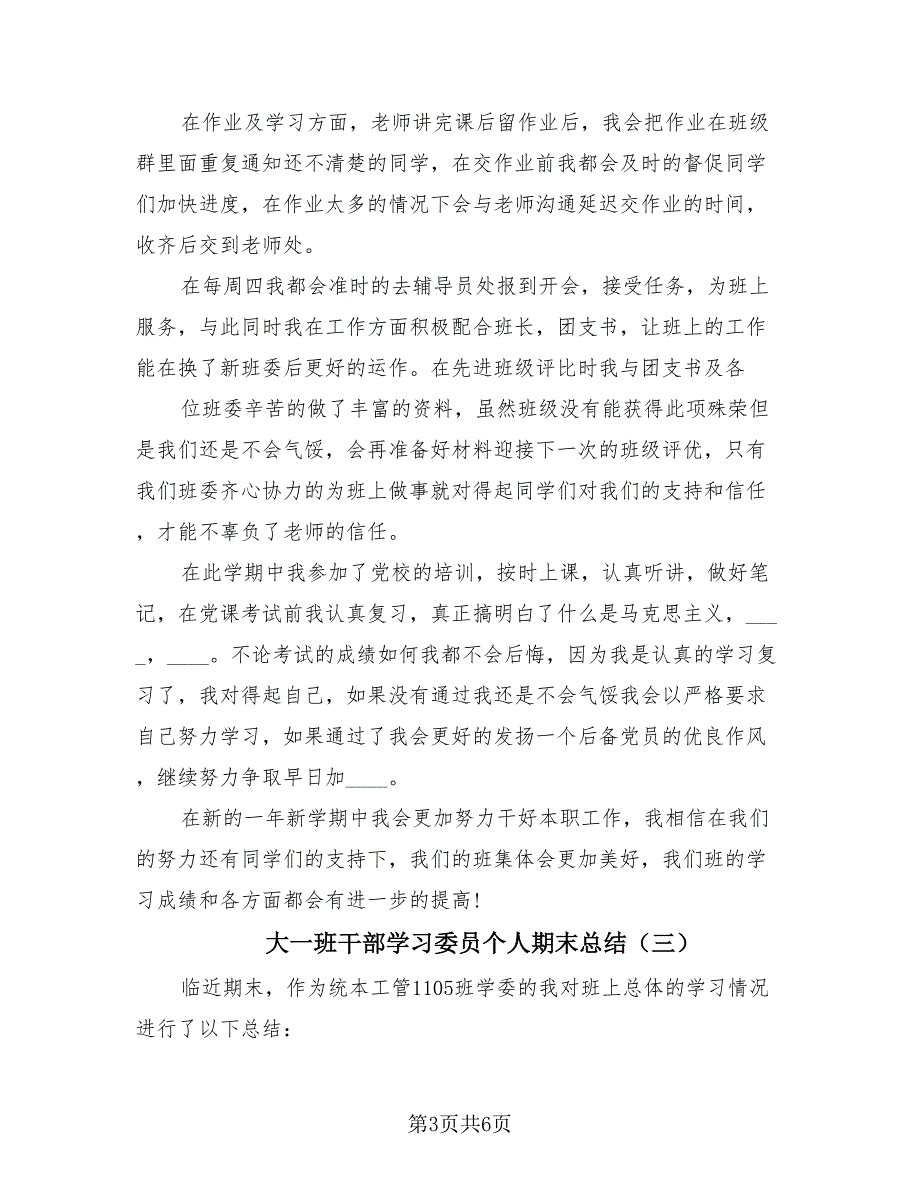 在作业及学习方面，老师讲完课后留作业后，我会把作业在班级
群里面重复通知还不清楚的同学，在交作业前我都会及时的督促同学
们加快进度，在作业太多的情况下会与老师沟通延迟交作业的时间，
收齐后交到老师处。
在每周四我都会准时的去辅导员处报到开会，接受任务，为班上
服务，与此同时我在工作方面积极配合班长，团支书，让班上的工作
能在换了新班委后更好的运作。在先进班级评比时我与团支书及各
位班委辛苦的做了丰富的资料，虽然班级没有能获得此项殊荣但
是我们还是不会气馁，会再准备好材料迎接下一次的班级评优，只有
我们班委齐心协力的为班上做事就对得起同学们对我们的支持和信任
，才能不辜负了老师的信任。
在此学期中我参加了党校的培训，按时上课，认真听讲，做好笔
记，在党课考试前我认真复习，真正搞明白了什么是马克思主义，___
_，____。不论考试的成绩如何我都不会后悔，因为我是认真的学习复
习了，我对得起自己，如果没有通过我还是不会气馁我会以严格要求
自己努力学习，如果通过了我会更好的发扬一个后备党员的优良作风
，继续努力争取早日加____。
在新的一年新学期中我会更加努力干好本职工作，我相信在我们
的努力还有同学们的支持下，我们的班集体会更加美好，我们班的学
习成绩和各方面都会有进一步的提高!
大一班干部学习委员个人期末总结（三）
临近期末，作为统本工管1105班学委的我对班上总体的学习情况
进行了以下总结：
第3页共6页